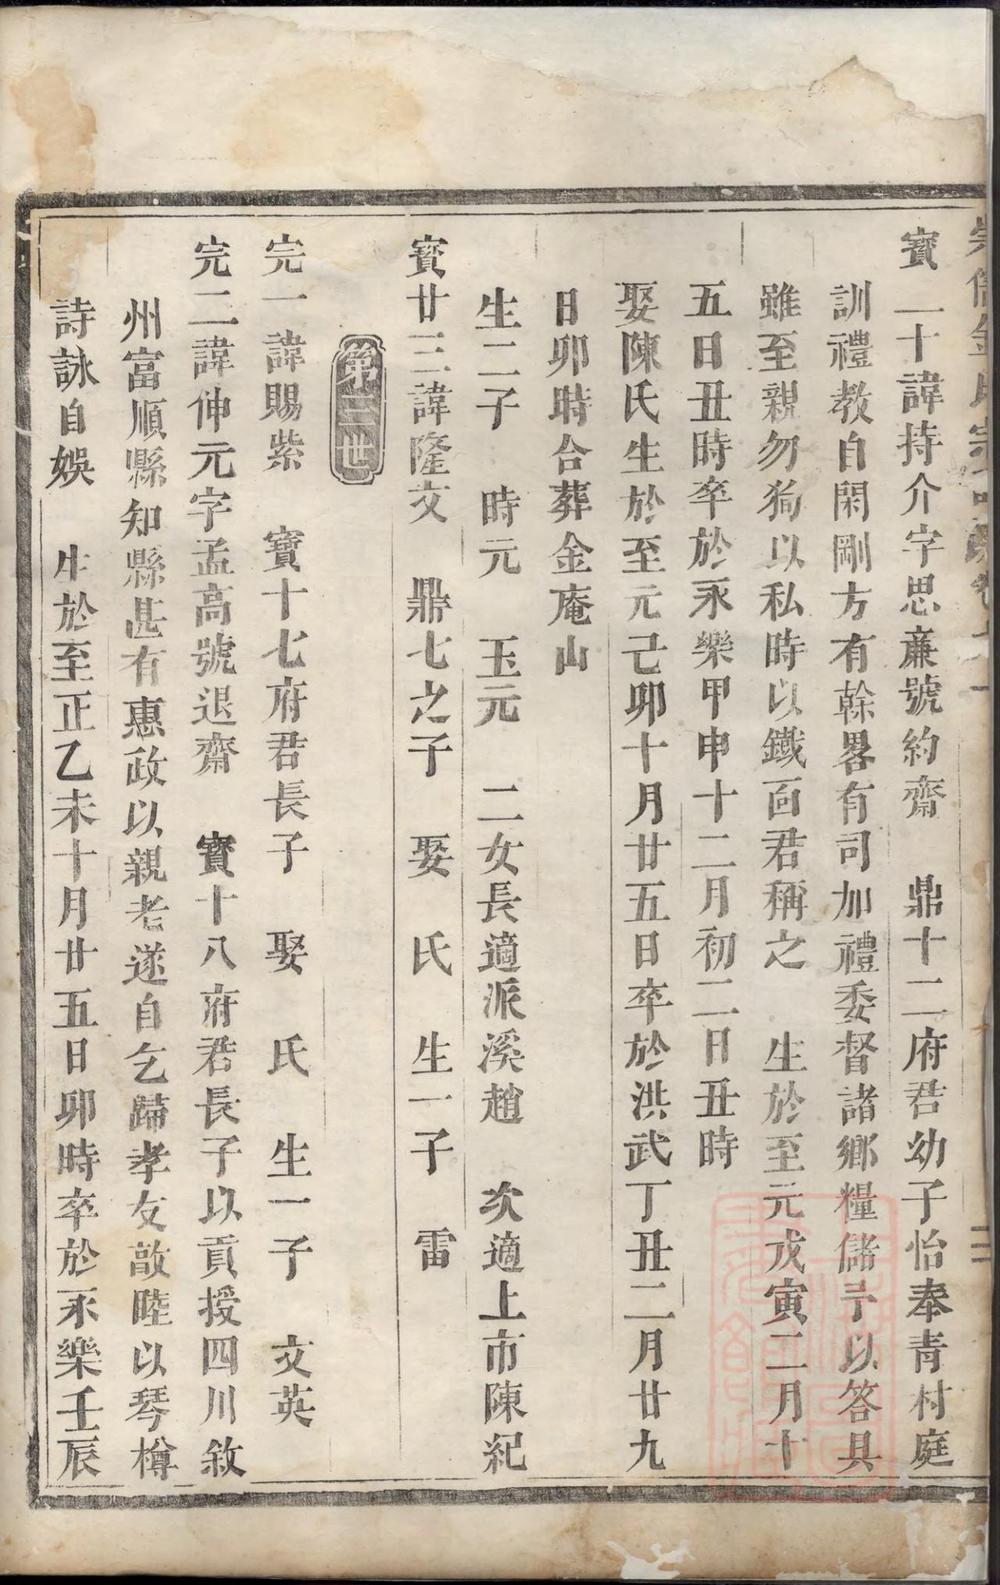 寳二十諱持介字思亷號約齋　鼎十二府君幼子怡奉青村庭
訓禮教自閑剛方有榦畧有司加禮委督諸鄉糧儲予以答具
雖至親勿狥以私時以鐵面君稱之　生於至元戊寅二月十
五日丑時卒於永樂甲申十二月初二日丑時
娶陳氏生於至元己卯十月廿五日卒於洪武丁丑二月廿九
日卯時合葬金庵山
生二子　時元　玉元　二女長適派溪趙　次適上市陳紀
寳廿三諱隆交　鼎七之子　娶　氏　生一子　雷
第三世
完一諱賜紫　寳十七府君長子　娶　氏　生一子　文英
完二諱伸元字孟高號退齋　寳十八府君長子以貢授四川敘
州富順縣知縣甚有惠政以親老遂自乞歸孝友敦睦以琴樽
詩詠自娛　生於至正乙未十月廿五日卯時卒於永樂壬辰